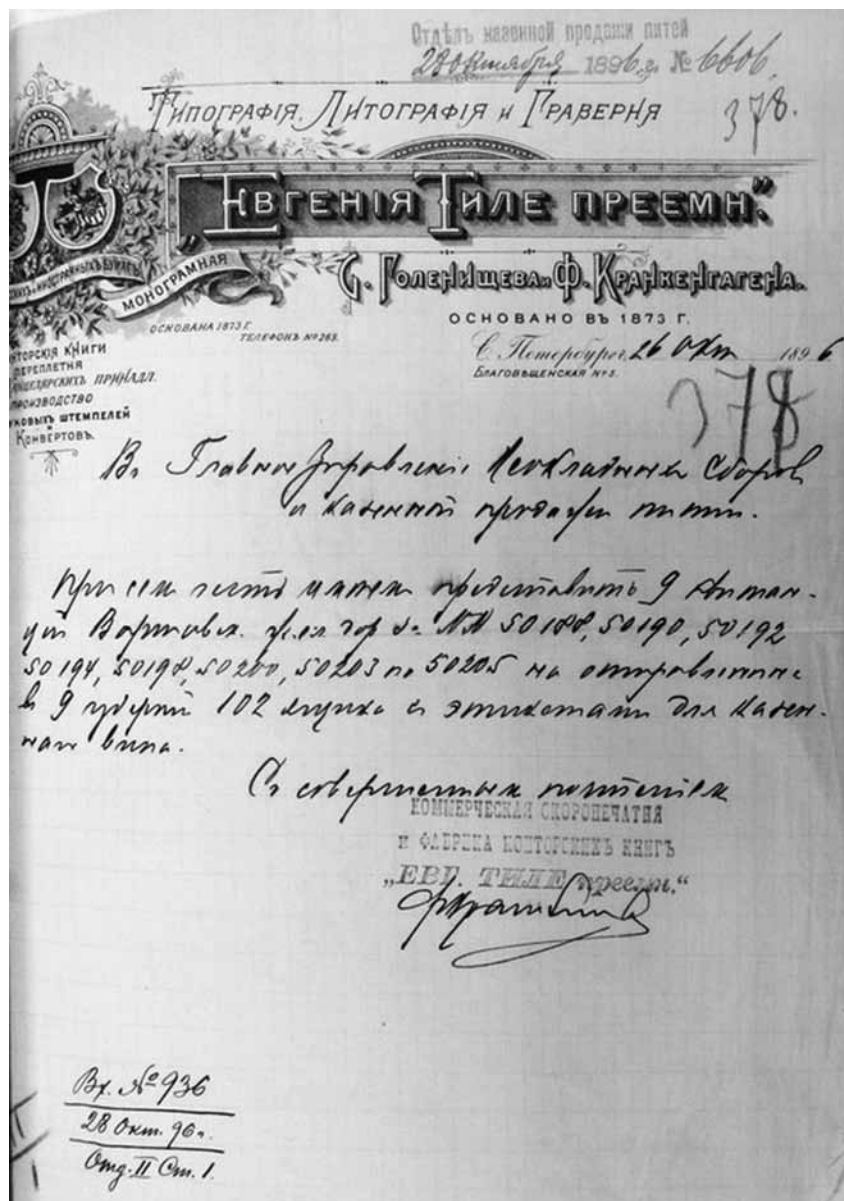 Отдѣлъ казенной продажи питей
28 Октября 1896 г. № 6606.
378.
Типографія, Литографія и Граверня
„Евгенія Тиле преемн."
С. Голенищева и Ф. Кранкенгагена.
МОНОГРАМНАЯ
ОСНОВАНА 1873 Г.
ТЕЛЕФОНЪ № 263.
ОСНОВАНО ВЪ 1873 Г.
С. Петербургъ, 26 Окт 1896
БЛАГОВѢЩЕНСКАЯ № 3.
378
ТОРСКІЯ КНИГИ
ПЕРЕПЛЕТНЯ
НЦЕЛЯРСКИХЪ ПРИНАДЛ.
ПРОИЗВОДСТВО
КОВЫХЪ ШТЕМПЕЛЕЙ
КОНВЕРТОВЪ.
Въ Главное Управленіе Неокладныхъ Сборов
и казенной продажи питей.
При сем честь имеем представить 9 квитан-
ций Варшавск. жел дор за NN 50188, 50190, 50192
50194, 50198, 50200, 50203 по 50205 на отправленные
в 9 губерний 102 ящика с этикетами для казен-
наго вина.
Съ совершенным почтением
КОММЕРЧЕСКАЯ СКОРОПЕЧАТНЯ
И ФАБРИКА КОНТОРСКИХЪ КНИГЪ
„ЕВГ. ТИЛЕ преемн."
Вх. № 936
28 Окт. 96 г.
Отд. II Ст. 1.